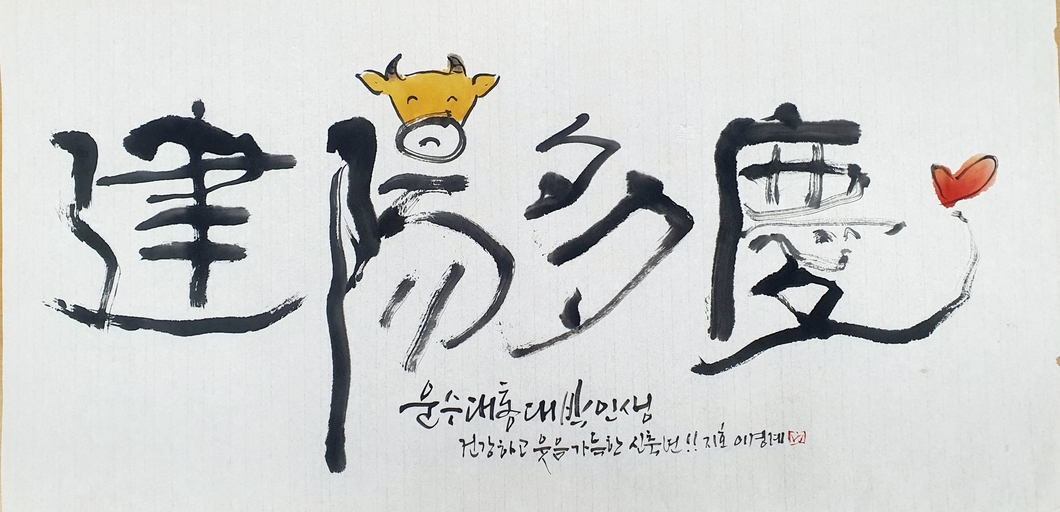 建陽多慶
운수대통 대박인생
건강하고 웃음가득한 신축년!! 지효 이경례